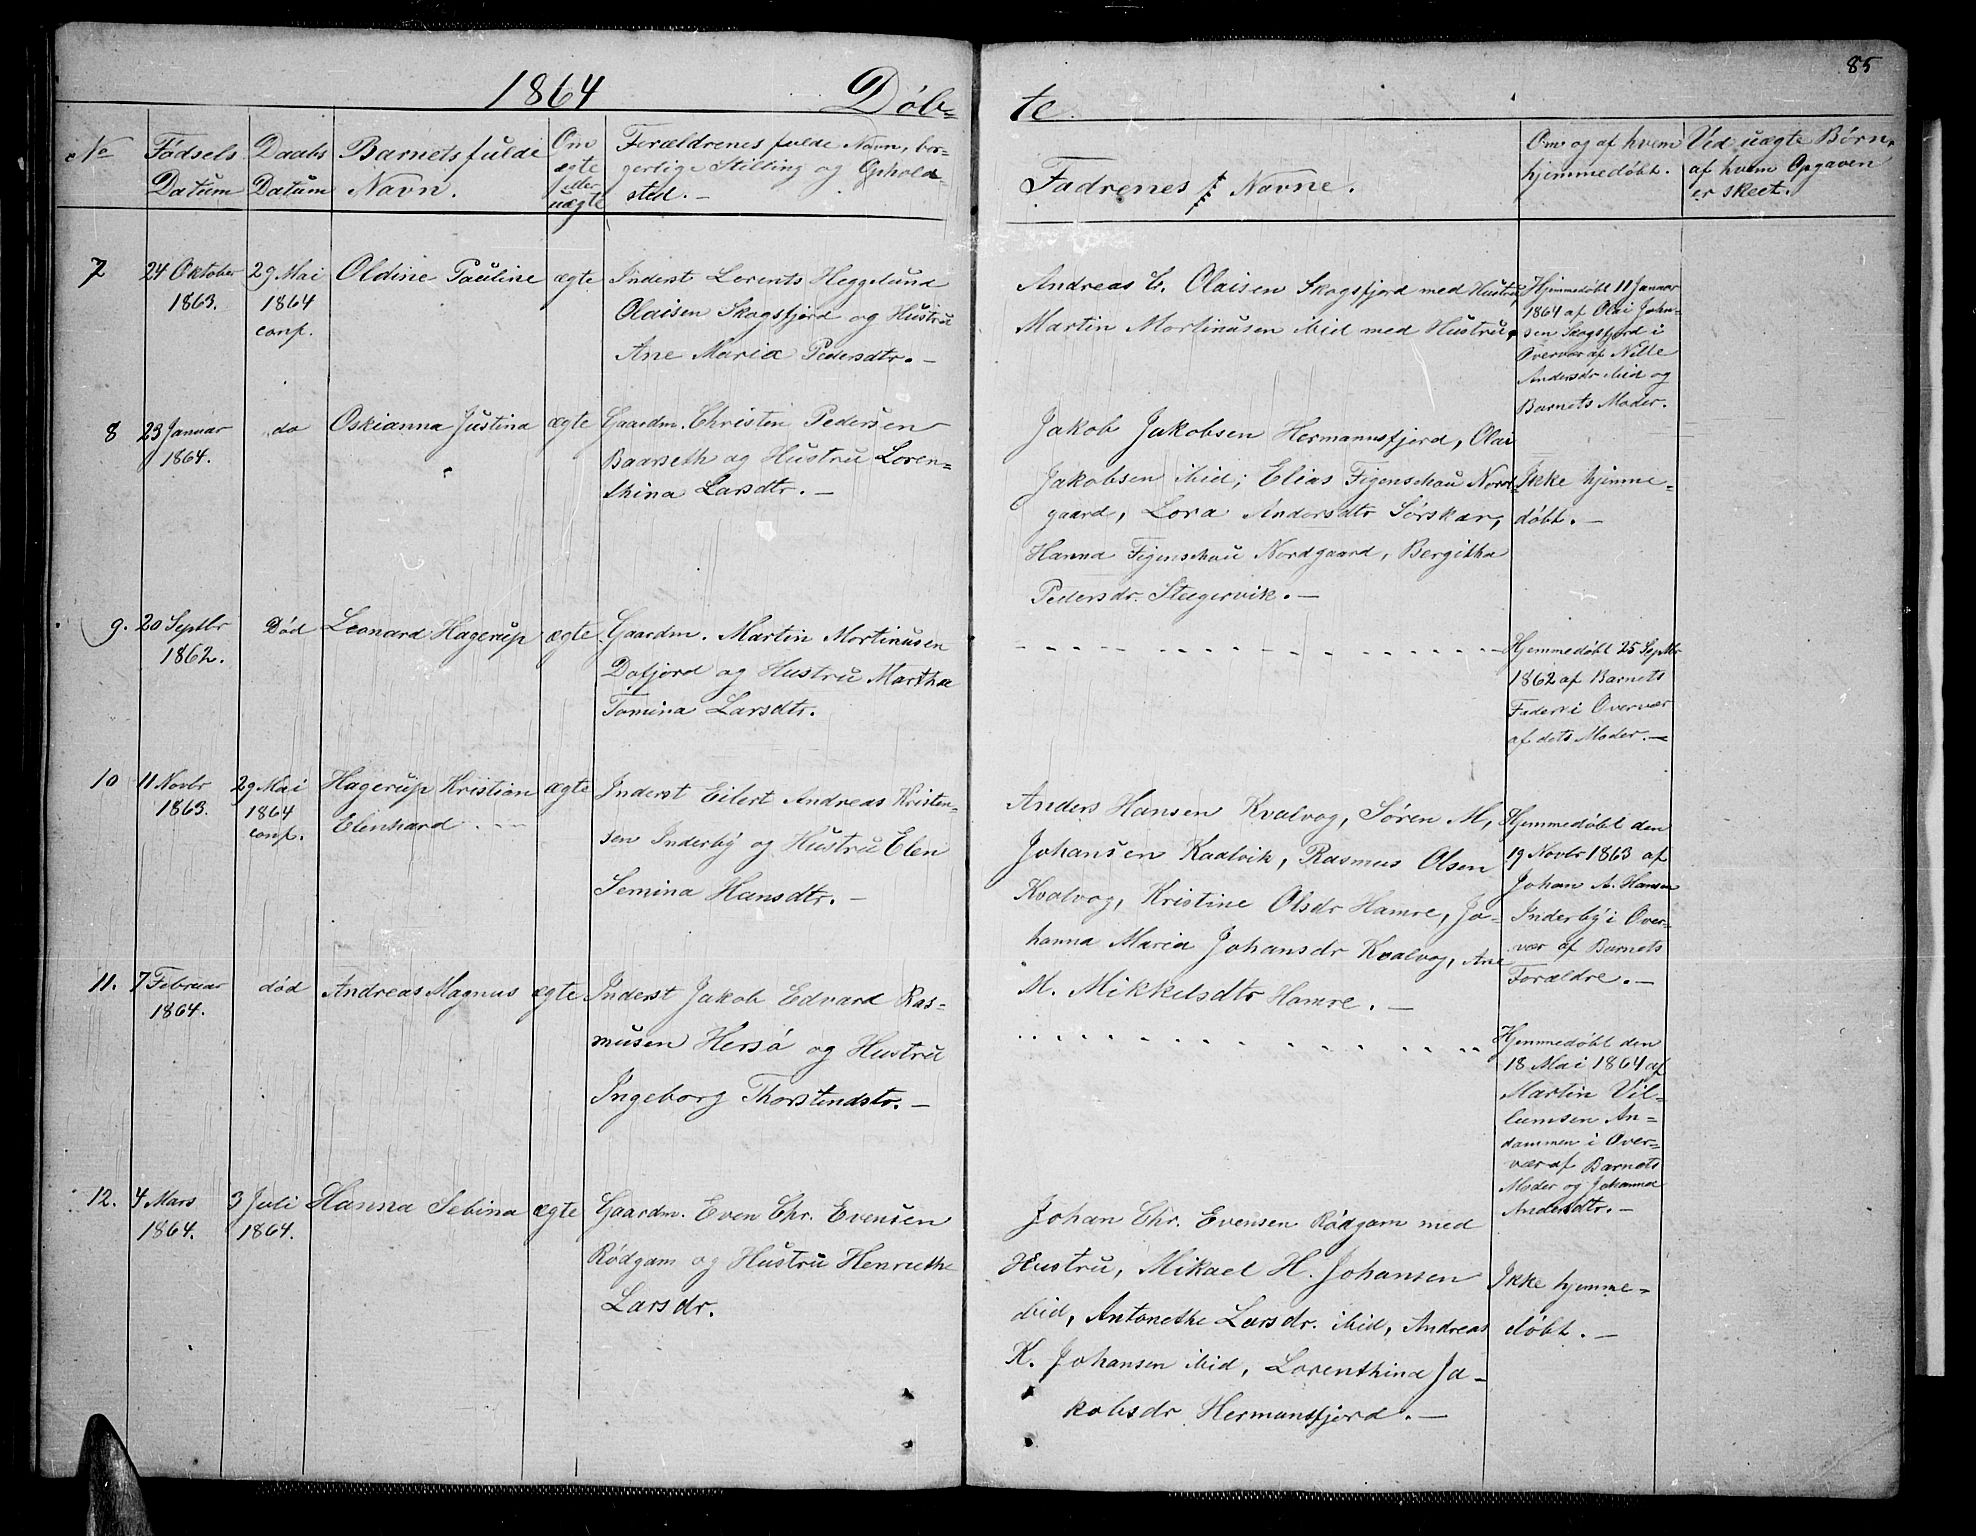 85
1864 Døb=
te.
No
Fødsels
Datum
Daabs
Datum
Barnets fulde
Navn.
Om
ægte
eller
uægte
Forældrenes fulde Navn, bor=
gerlige Stilling og Ophold=
sted. —
Fadrenes Navne.
Om og af hvem
hjemmedøbt.
Ved uægte Børn,
af hvem Opgaven
er skeet.
7
24 Oktober
1863.
29 Mai
1864
conf.
Oldine Pauline
ægte
Inderst Lorents Heggelund
Olaisen Skogsfjord og Hustru
Ane Maria Pedersdtr. —
Andreas E. Olaisen Skogsfjord med Hustru,
Martin Mortinusen ibid med Hustru,
Hjemmedøbt 11 Januar
1864 af Olai Johan=
sen Skogsfjord i
Overvær af Nille
Andersdr ibid og
Barnets Moder.
8
23 Januar
1864.
do
Oskianna Justina
ægte
Gaardm. Christen Pedersen
Baarseth og Hustru Loren=
thina Larsdtr. —
Jakob Jakobsen Hermansfjord, Olai
Jakobsen ibid; Elias Figenschau Nord
gaard, Lora Andersdtr Sørskar,
Hanna Figenschau Nordgaard, Bergitha
Pedersdr. Stegervik. —
Ikke hjemme=
døbt. —
9.
20 Septbr
1862.
Død
Leonard Hagerup
ægte
Gaardm. Martin Mortinusen
Dafjord og Hustru Martha
Tomina Larsdtr.
Hjemmedøbt 25 Septbr
1862 af Barnets
Fader i Overvær
af dets Moder. —
10
11 Novbr
1863.
29 Mai
1864
conf.
Hagerup Kristian
Elenhard
ægte
Inderst Eilert Andreas Kristen=
sen Inderby og Hustru Elen
Semina Hansdtr. —
Anders Hansen Kvalvog, Søren M,
Johansen Kaalvik, Rasmus Olsen
Kvalvog, Kristine Olsdr Hamre, Jo=
hanna Maria Johansdr Kvalvog, Ane
M. Mikkelsdtr Hamre. —
Hjemmedøbt den
19 Novbr 1863 af
Johan A. Hansen
Inderby i Over=
vær af Barnets
Forældre. —
11.
7 Februar
1864.
død
Andreas Magnus
ægte
Inderst Jakob Edvard Ras=
musen Hersø og Hustru
Ingeborg Thorstendstr. —
Hjemmedøbt den
18 Mai 1864 af
Martin Vil=
lumsen An=
dammen i Over=
vær af Barnets
Moder og Johanna
Andersdtr. —
12.
4 Mars
1864.
3 Juli
1864.
Hanna Sebina
ægte
Gaardm. Even Chr. Evensen
Rødgam og Hustru Henrethe
Larsdr.
Johan Chr. Evensen Rødgam med
Hustru, Mikael H. Johansen
ibid, Antonethe Larsdr. ibid, Andreas
K. Johansen ibid, Lorenthina Ja=
kobsdr Hermansfjord. —
Ikke hjemme=
døbt. —